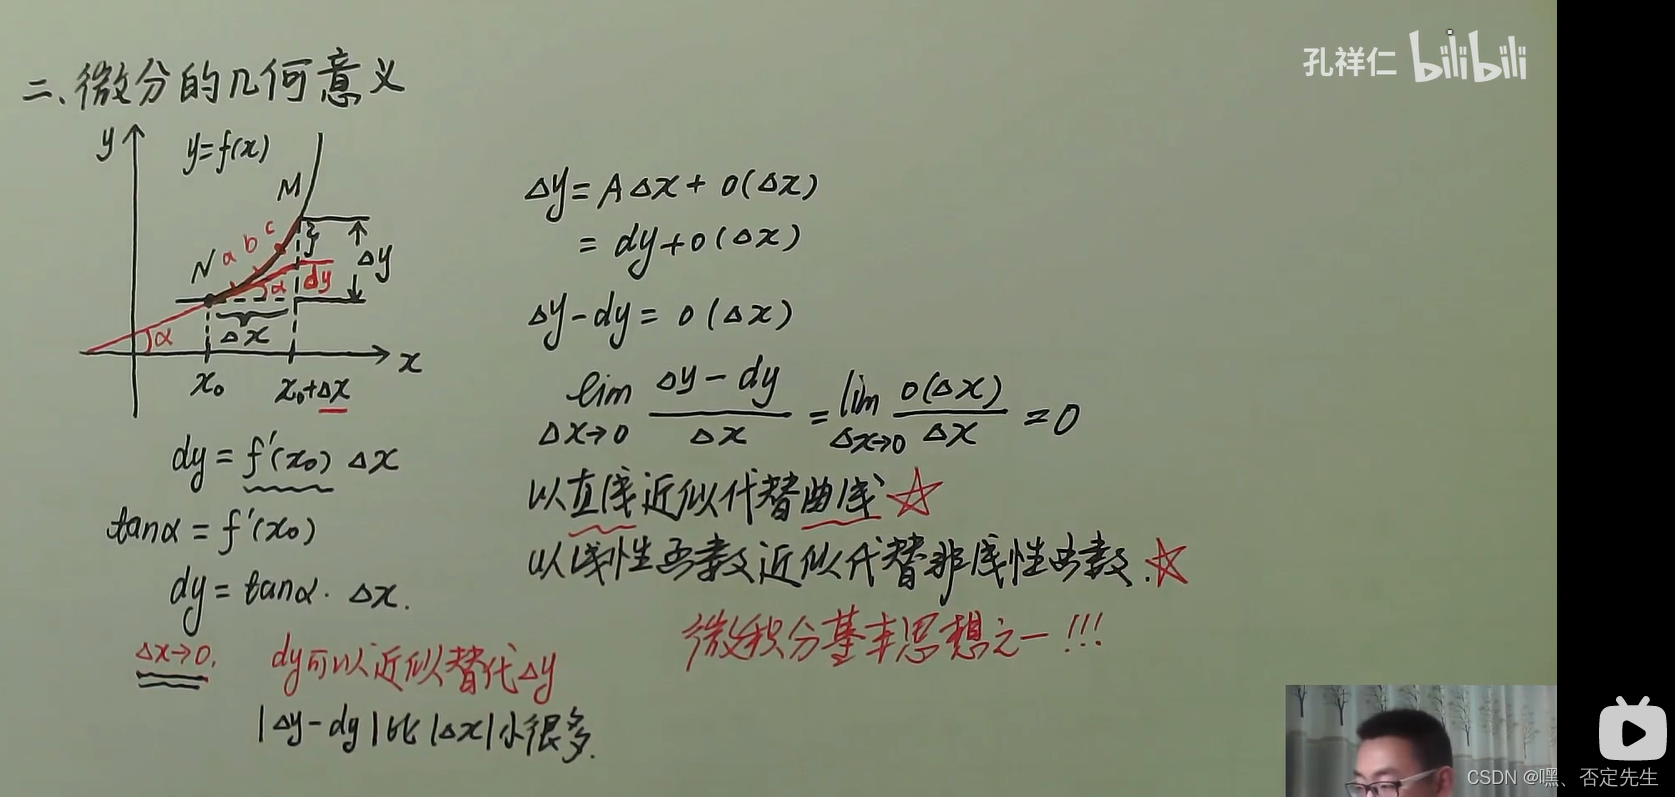 孔祥仁 bilibili
二、微分的几何意义
y
y=f(x)
M
a b c
N
Δy
dy
α
α
Δx
x
x₀
x₀+Δx
dy = f'(x₀) Δx
tanα = f'(x₀)
dy = tanα · Δx.
Δx→0. dy可以近似替代Δy
|Δy-dy|比|Δx|小很多.
Δy = AΔx + o(Δx)
= dy + o(Δx)
Δy - dy = o(Δx)
lim Δx→0 (Δy - dy)/Δx = lim Δx→0 o(Δx)/Δx = 0
以直线近似代替曲线☆
以线性函数近似代替非线性函数.☆
微积分基本思想之一!!!
CSDN @嘿、否定先生